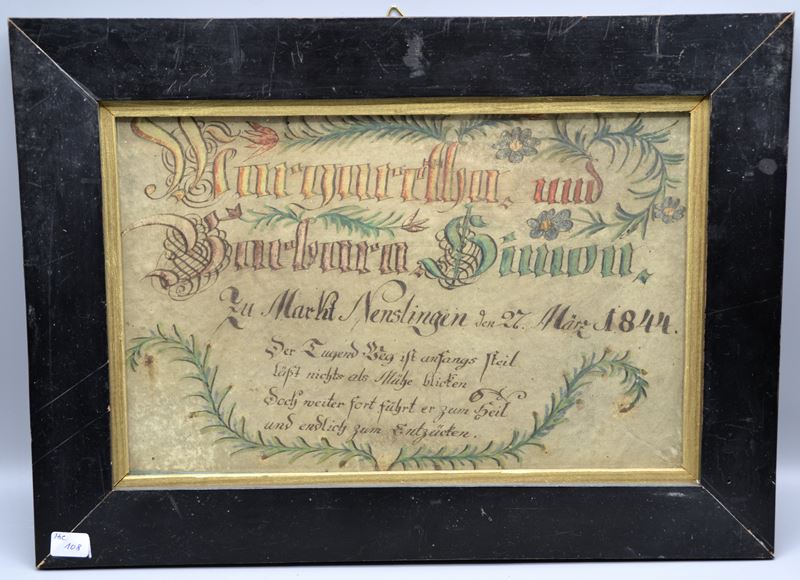 Margaretha. und
Barbara. Simon.
Zu Markt Nenslingen den 27. März 1844.
Der Tugend Weg ist anfangs steil
läßt nichts als Mühe blicken
Doch weiter fort führt er zum Heil
und endlich zum Entzücken.
108